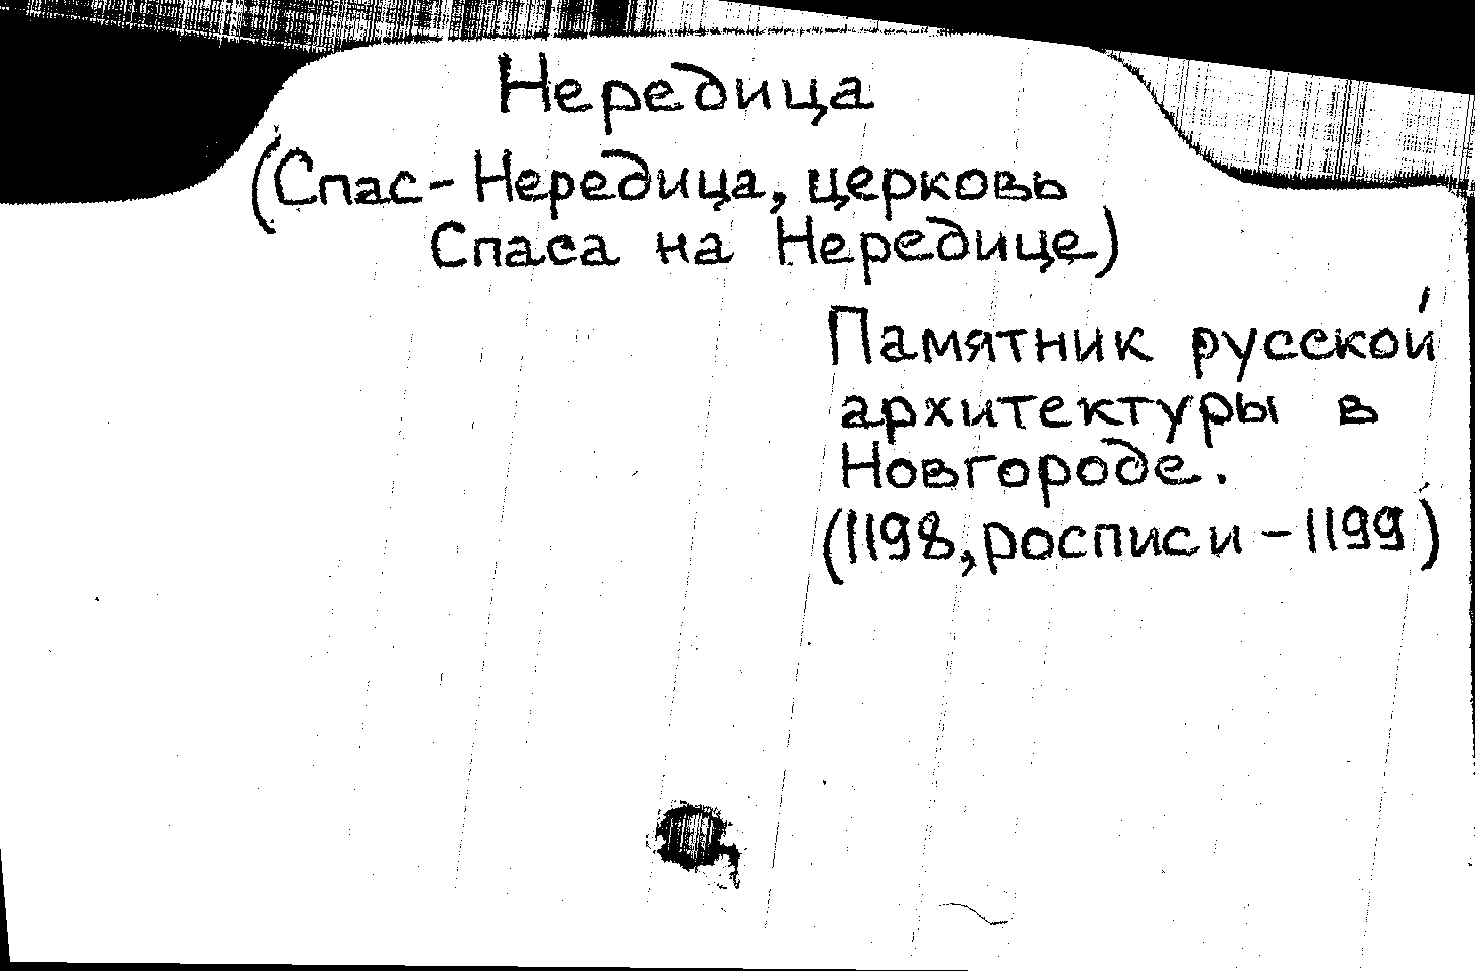 Нередица
(Спас-Нередица, церковь
Спаса на Нередице)
Памятник русской
архитектуры в
Новгороде.
(1198, росписи - 1199)